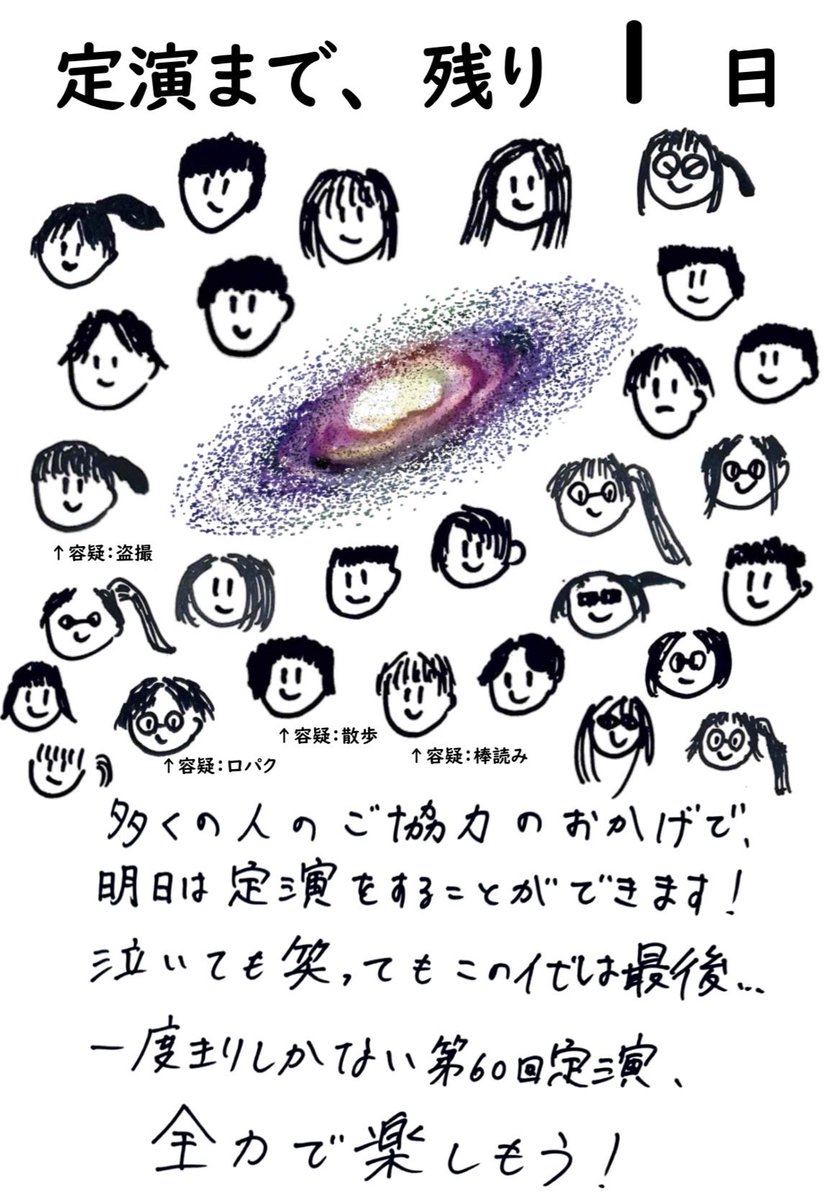 定演まで、残り 1 日
↑容疑:盗撮
↑容疑:散歩
↑容疑:口パク
↑容疑:棒読み
多くの人のご協力のおかげで、
明日は定演をすることができます!
泣いても笑ってもこの代は最後...
一度きりしかない第60回定演、
全力で楽しもう!